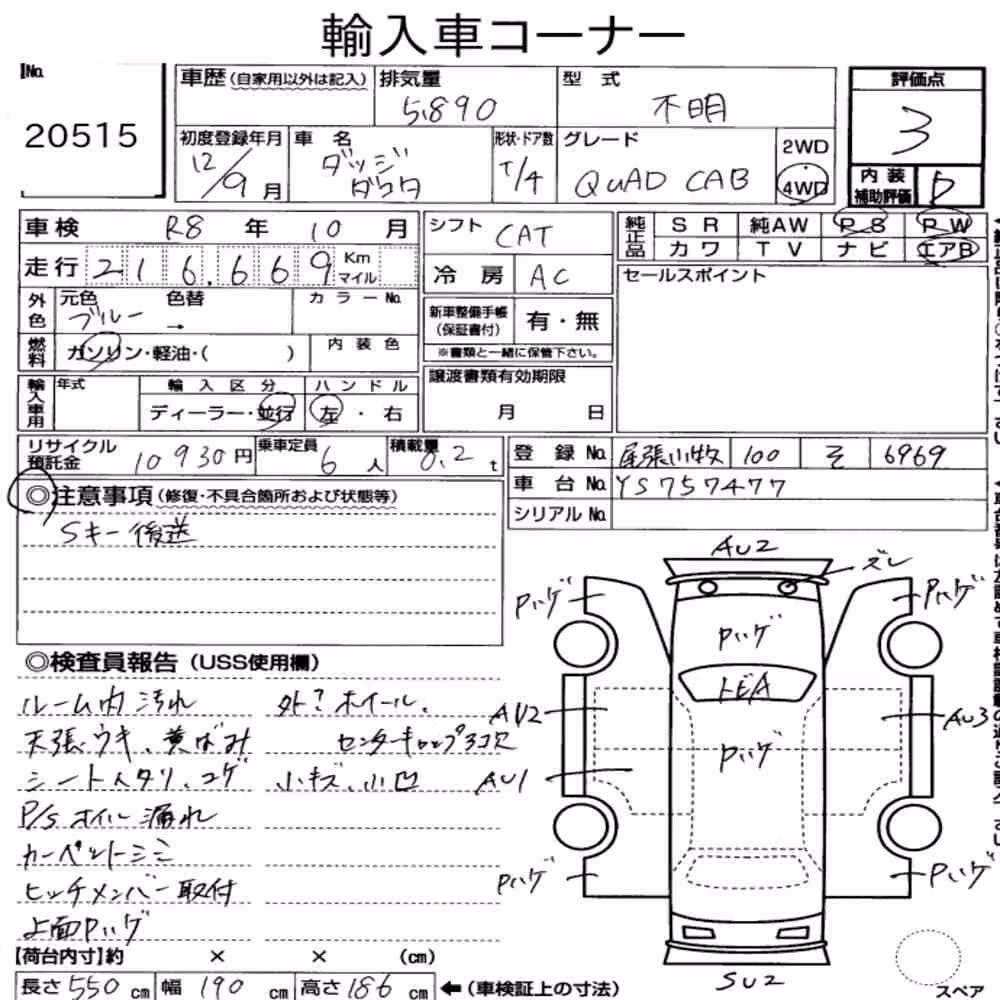 輸入車コーナー
No.
20515
車歴 (自家用以外は記入)
排気量
5.890
型 式
不明
評価点
3
初度登録年月
12/9 月
車 名
ダッジ
ダコタ
形状・ドア数
T/4
グレード
QUAD CAB
2WD
4WD
内 装
補助評価
D
車検 R8 年 10 月
走行 216,669 Km
マイル
シフト CAT
冷 房 AC
純正品
SR 純AW PS PW
カワ TV ナビ エアB
セールスポイント
外色
元色 ブルー
色替 →
カラーNo.
燃料
ガソリン・軽油・( )
内 装 色
新車整備手帳
(保証書付)
有・無
※書類と一緒に保管下さい。
輸入車用
年式
輸 入 区 分
ディーラー・並行
ハ ン ド ル
左 ・ 右
譲渡書類有効期限
月 日
リサイクル
預託金
10930円
乗車定員
6 人
積載量
0.2 t
登 録 No. 尾張小牧 100 そ 6969
車 台 No. YS757477
シリアル No.
◎注意事項 (修復・不具合箇所および状態等)
Sキー後送
◎検査員報告 (USS使用欄)
ルーム内汚れ
外? ホイール、
天張ウキ、黄ばみ
センターキャップ3コ欠
シートヘタリ、コゲ
小キズ、小凹
P/Sオイル漏れ
カーペットシミ
ヒッチメンバー取付
上面Pハゲ
AU2
ズレ
Pハゲ
Pハゲ
Pハゲ
トビA
AU2
AU3
Pハゲ
AU1
Pハゲ
Pハゲ
SU2
スペア
【荷台内寸】約 × × (cm)
長さ 550 cm 幅 190 cm 高さ 186 cm ←(車検証上の寸法)